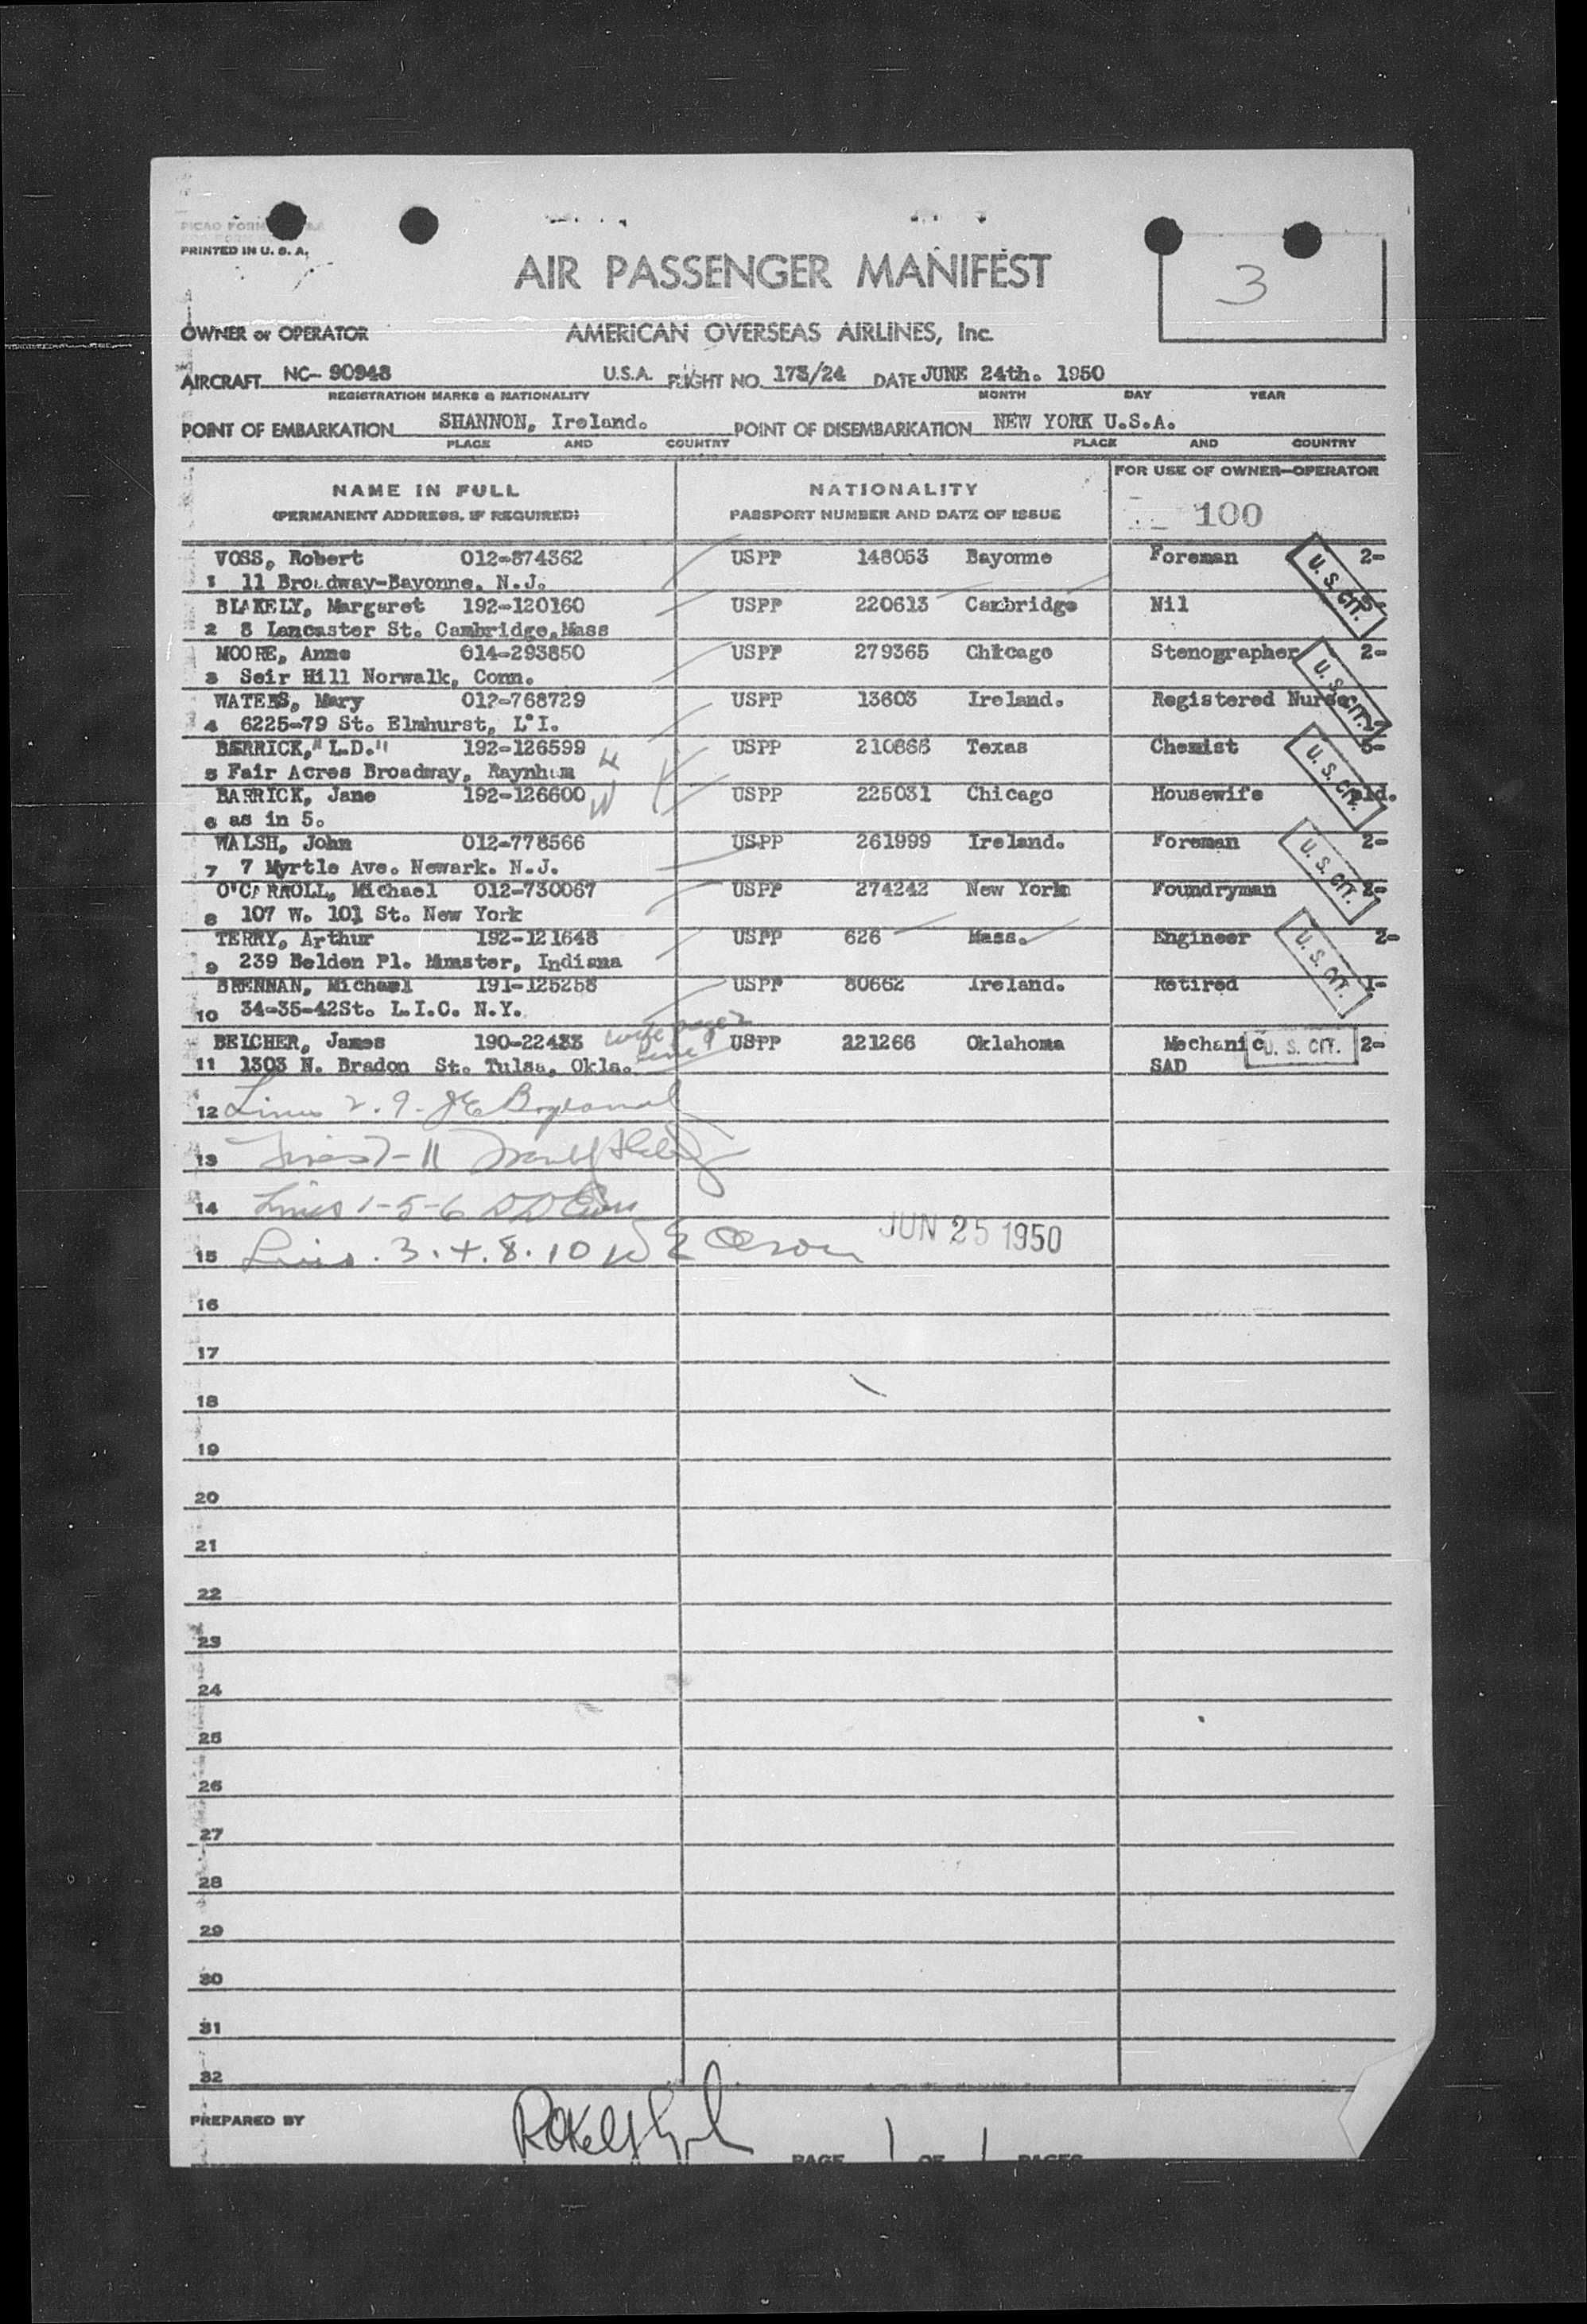 PRINTED IN U. S. A.
AIR PASSENGER MANIFEST
3
OWNER or OPERATOR AMERICAN OVERSEAS AIRLINES, Inc.
AIRCRAFT NC- 90948 U.S.A. FLIGHT NO. 173/24 DATE JUNE 24th. 1950
REGISTRATION MARKS & NATIONALITY MONTH DAY YEAR
POINT OF EMBARKATION SHANNON, Ireland. POINT OF DISEMBARKATION NEW YORK U.S.A.
PLACE AND COUNTRY PLACE AND COUNTRY
FOR USE OF OWNER—OPERATOR
NAME IN FULL NATIONALITY
(PERMANENT ADDRESS, IF REQUIRED) PASSPORT NUMBER AND DATE OF ISSUE 100
VOSS, Robert 012-874362 USPP 148053 Bayonne Foreman 2-
1 11 Broadway-Bayonne, N.J. U. S. CIT.
BLAKELY, Margaret 192-120160 USPP 220613 Cambridge Nil
2 8 Lancaster St. Cambridge,Mass
MOORE, Anne 014-293850 USPP 279365 Chicago Stenographer 2-
3 Seir Hill Norwalk, Conn. U. S. CIT.
WATERS, Mary 012-768729 USPP 13603 Ireland. Registered Nurse
4 6225-79 St. Elmhurst, L.I.
BERRICK," L.D." 192-126599 USPP 210866 Texas Chemist
5 Fair Acres Broadway, Raynham H U. S. CIT.
BARRICK, Jane 192-126600 W USPP 225031 Chicago Housewife
6 as in 5.
WALSH, John 012-778566 USPP 261999 Ireland. Foreman 2-
7 7 Myrtle Ave. Newark. N.J. U. S. CIT.
O'CARROLL, Michael 012-730067 USPP 274242 New York Foundryman 2-
8 107 W. 101 St. New York
TERRY, Arthur 192-121648 USPP 626 Mass. Engineer 2-
9 239 Belden Pl. Munster, Indiana U. S. CIT.
BRENNAN, Michael 191-125258 USPP 80662 Ireland. Retired 1-
10 34-35-42St. L.I.C. N.Y.
BELCHER, James 190-22433 wife page 2 USPP 221266 Oklahoma Mechanic U. S. CIT. 2-
11 1303 N. Bradon St. Tulsa, Okla. line 9 SAD
12 Lines 2.9.
13 Lines 7-11
14 Lines 1-5-6
15 Lines. 3.4.8.10 W E Olson JUN 25 1950
16
17
18
19
20
21
22
23
24
25
26
27
28
29
30
31
32
PREPARED BY
PAGE 1 OF 1 PAGES